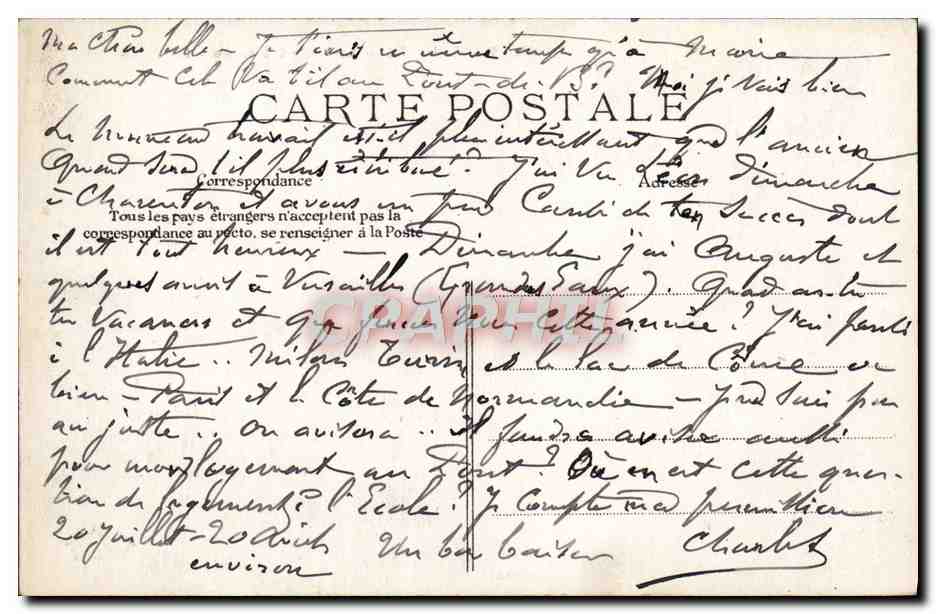 Ma chère belle – Je t'écris en même temps qu'à Marie
Comment cela va-t-il au Pont-de- Moi je vais bien
CARTE POSTALE
Le nouveau travail est-il plus intéressant que l'ancien
Quand sera-t-il plus rétribué? J'ai vu Léon dimanche
Correspondance
Adresse
à Charenton et avons un peu de ton succès dont
Tous les pays étrangers n'acceptent pas la
correspondance au recto, se renseigner à la Poste
il est tout heureux – Dimanche j'ai Auguste et
quelques amis à Versailles (Grandes Eaux). Quand as-tu
CPAPHIL.com
tes vacances et que ferons nous cette année? J'ai pensé
à l'Italie .. Milan Turin et le lac de Côme ou
bien – Paris et la Côte de Normandie – Je ne sais pas
au juste .. on avisera .. il faudra aviser aussi
pour mon logement au Pont? Où en est cette ques-
tion de logement à l'Ecole? Je compte ma permission
20 juillet – 20 Août Un bon baiser Charles
environ